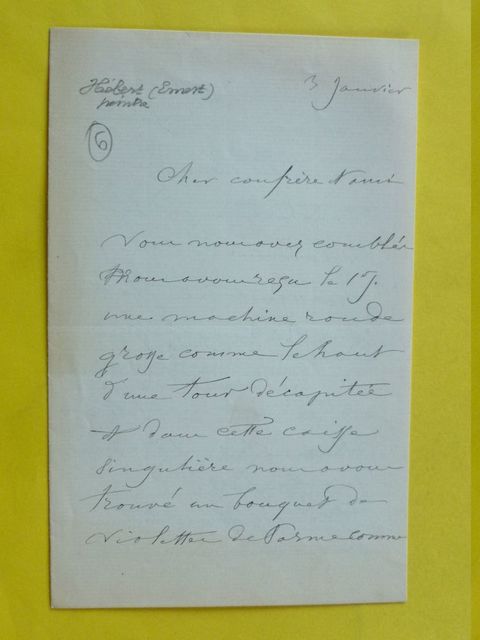 Hébert (Ernest)
peintre
3 Janvier
6
Cher confrère & ami
Vous nous avez comblés
Nous avons reçu le 1er J.
une machine ronde
grosse comme le haut
d'une tour décapitée
& dans cette caisse
singulière nous avons
trouvé un bouquet de
violettes de Parme comme